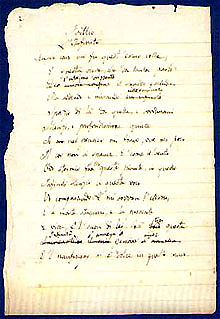 Idillio
L'Infinito
Sempre caro mi fu quest'ermo colle,
E questa siepe, che da tanta parte
Ma sedendo e mirando
Spazio di là da quella, e sovrumani
Silenzi, e profondissima quiete
Io nel pensier mi fingo, ove per poco
Il cor non si spaura. E come il vento
Odo stormir tra queste piante, io quello
Infinito silenzio a questa voce
Vo comparando: e mi sovvien l'eterno,
E le morte stagioni, e la presente
E viva, e 'l suon di lei. Così tra questa
E 'l naufragar m'è dolce in questo mare.